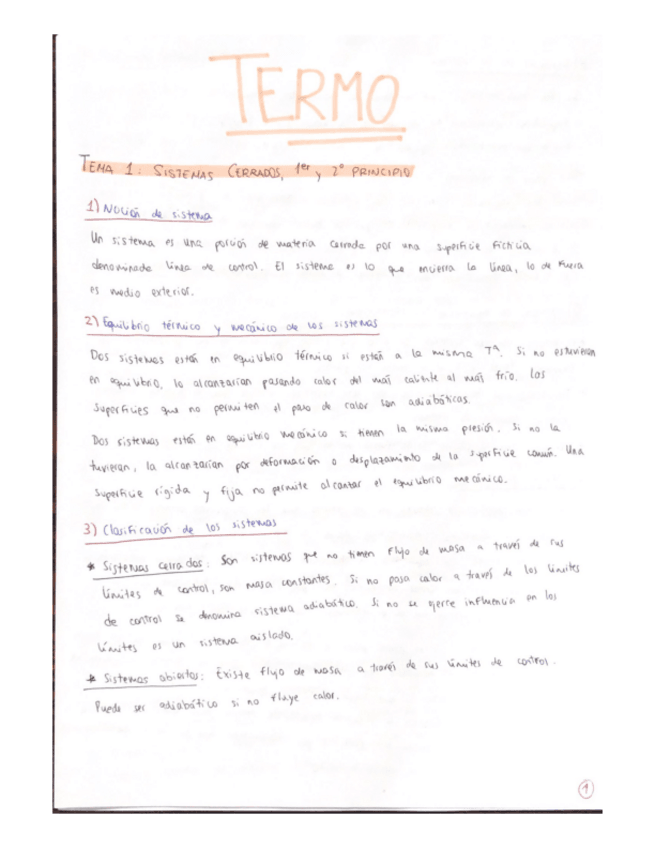 TERMO
TEMA 1: SISTEMAS CERRADOS, 1er y 2º PRINCIPIO
1) Noción de sistema
Un sistema es una porción de materia cerrada por una superficie ficticia
denominada línea de control. El sistema es lo que encierra la línea, lo de fuera
es medio exterior.
2) Equilibrio térmico y mecánico de los sistemas
Dos sistemas están en equilibrio térmico si están a la misma Tª. Si no estuvieran
en equilibrio, lo alcanzarían pasando calor del más caliente al más frío. Las
superficies que no permiten el paso de calor son adiabáticas.
Dos sistemas están en equilibrio mecánico si tienen la misma presión. Si no la
tuvieran, la alcanzarían por deformación o desplazamiento de la superficie común. Una
superficie rígida y fija no permite alcanzar el equilibrio mecánico.
3) Clasificación de los sistemas
* Sistemas cerrados: Son sistemas que no tienen flujo de masa a través de sus
límites de control, son masa constantes. Si no pasa calor a través de los límites
de control se denomina sistema adiabático. Si no se ejerce influencia en los
límites es un sistema aislado.
* Sistemas abiertos: Existe flujo de masa a través de sus límites de control.
Puede ser adiabático si no fluye calor.
1